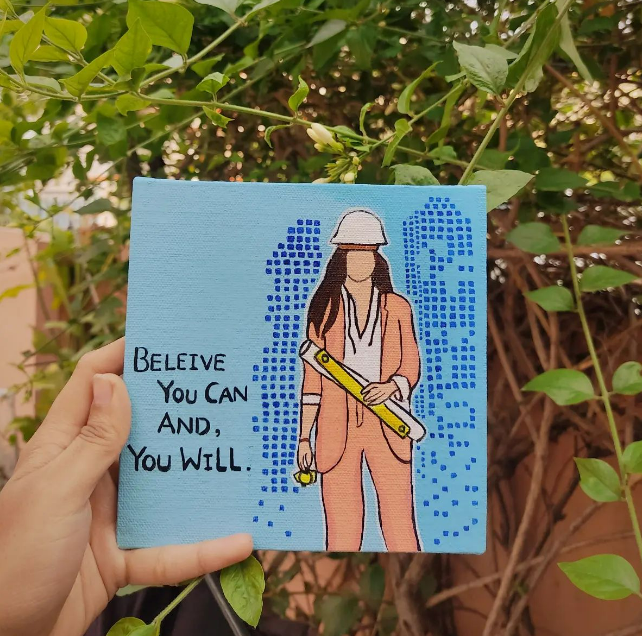 BELEIVE
YOU CAN
AND,
YOU WILL.